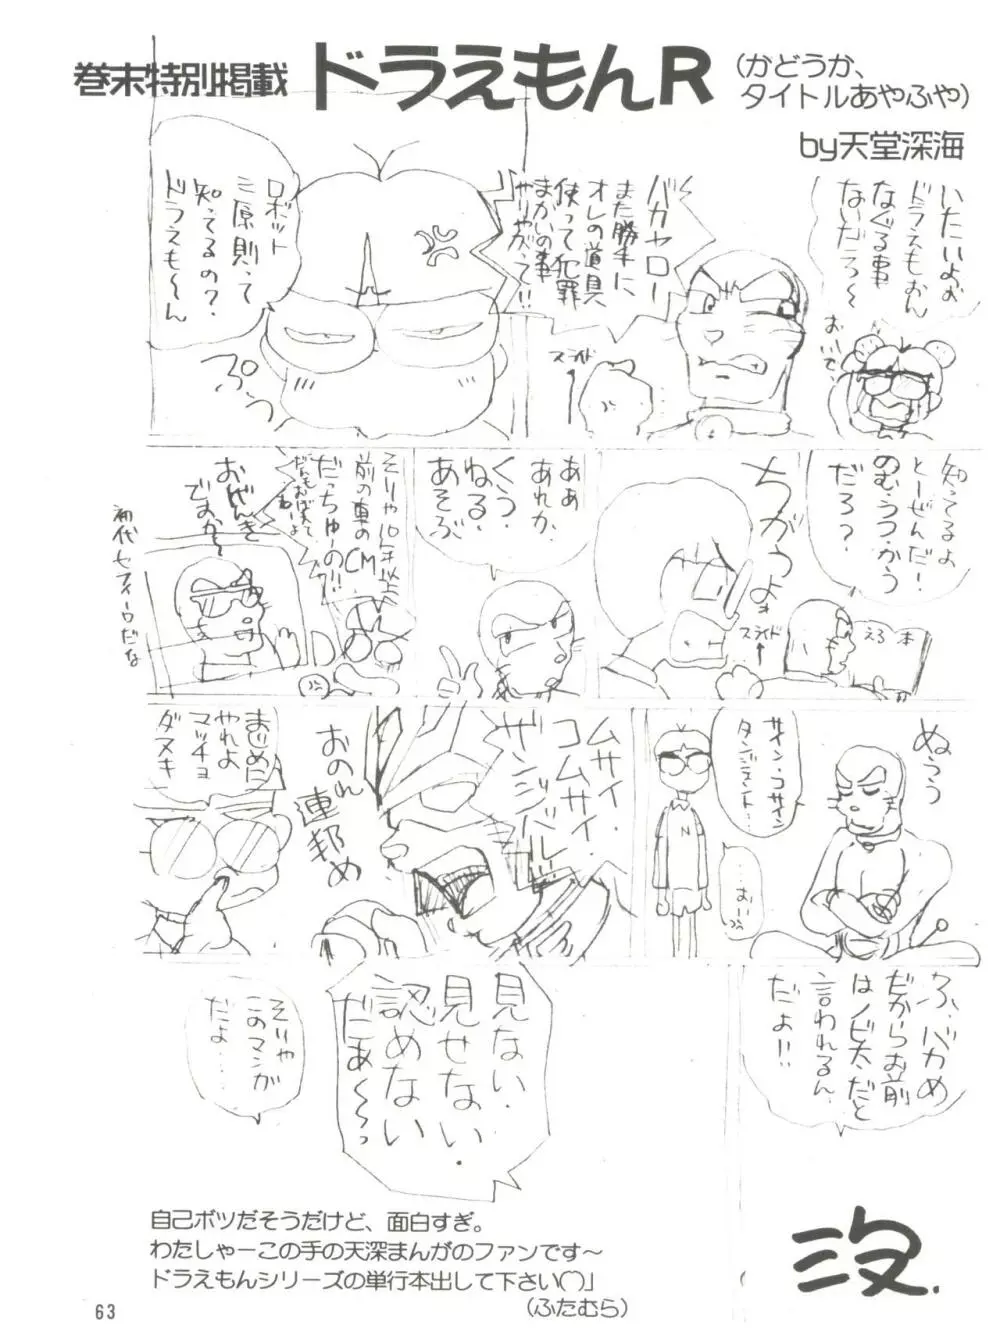 巻末特別掲載
ドラえもんR
(かどうか、
タイトルあやふや)
by天堂深海
いたいよぉ
ドラえもおん
なぐる事
ないだろ〜
おいで
バカヤロー
また勝手に、
オレの道具
使って犯罪
まがいの事
やりやがって!!
スライド
ロボット
三原則って
知ってるの?
ドラえも〜ん
ぷぅ
知ってるよ
とーぜんだ!
のむ・うつ・かう
だろ?
えろ本
スライド
ちがうよぉ
ああ
あれか、
くう・
ねる・
あそぶ
そりゃ10年以上
前の車の
CM
だっちゅーの!!
だれもおぼえて
ねーよ
おげんき
ですか〜
初代セフィーロだな
ぬぅぅ
サイン・コサイン
タンジェント…
…おいおい
N
ムサイ・
コムサイ・
ザンジバル!!
おのれ
連邦め
まじめに
やれよ
マッチョ
ダヌキ
ふ、バカめ
だからお前
はノビ太だと
言われるん
だよ!!
見ない・
見せない・
認めない
だぁ〜〜っ
そりゃ
このマンガ
だよ…
没.
自己ボツだそうだけど、面白すぎ。
わたしゃーこの手の天深まんがのファンです〜
ドラえもんシリーズの単行本出して下さい(♡)」
(ふたむら)
63